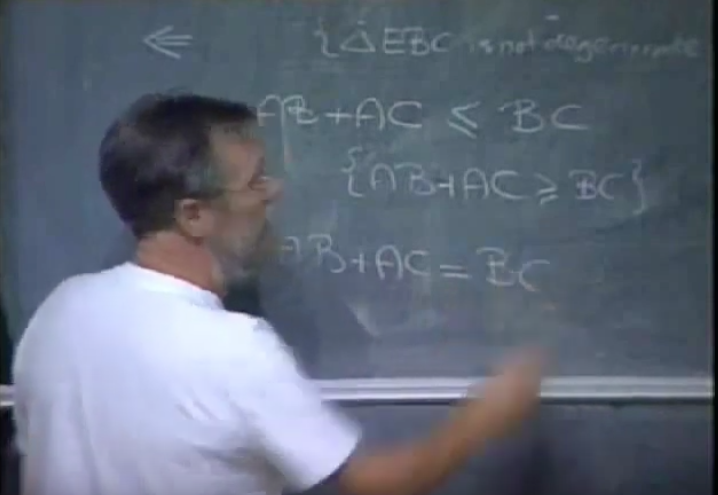 ⇐ {△EBC is not degenerate
AB+AC ≤ BC
{AB+AC ≥ BC}
AB+AC = BC